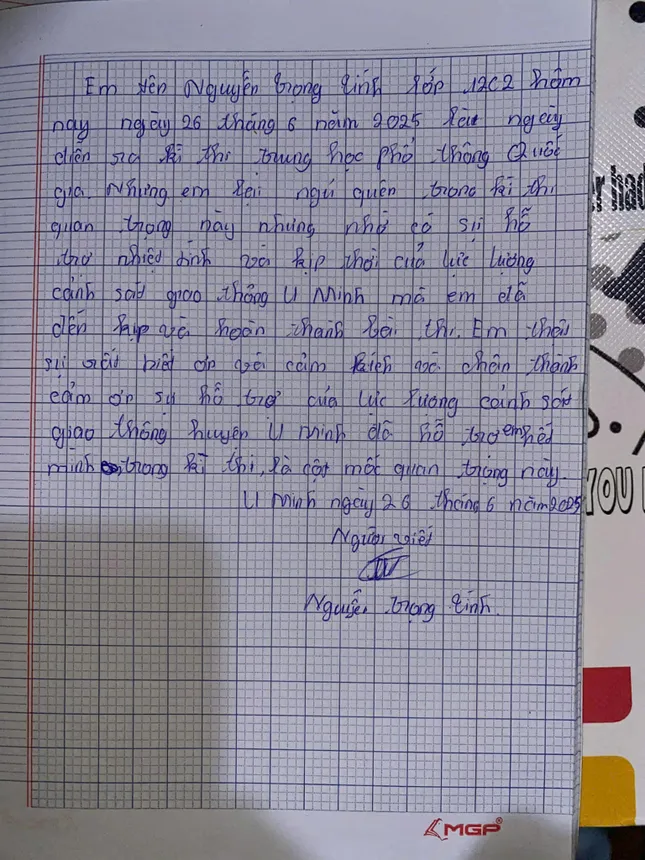 Em tên Nguyễn trọng tính lớp 12C2 hôm
nay ngày 26 tháng 6 năm 2025 là ngày
diễn ra kì thi trung học phổ thông Quốc
gia. Nhưng em lại ngủ quên trong kì thi
quan trọng này nhưng nhờ có sự hỗ
trợ nhiệt tình và kịp thời của lực lượng
cảnh sát giao thông U Minh mà em đã
đến kịp và hoàn thanh bài thi. Em thật
sự rất biết ơn và cảm kích và chân thành
cảm ơn sự hỗ trợ của lực lượng cảnh sát
giao thông huyện U minh đã hỗ trợ em hết
mình trong kì thi, là cột mốc quan trọng này.
U Minh ngày 26 tháng 6 năm 2025
Người viết
Nguyễn trọng tính.
MGP
YOU